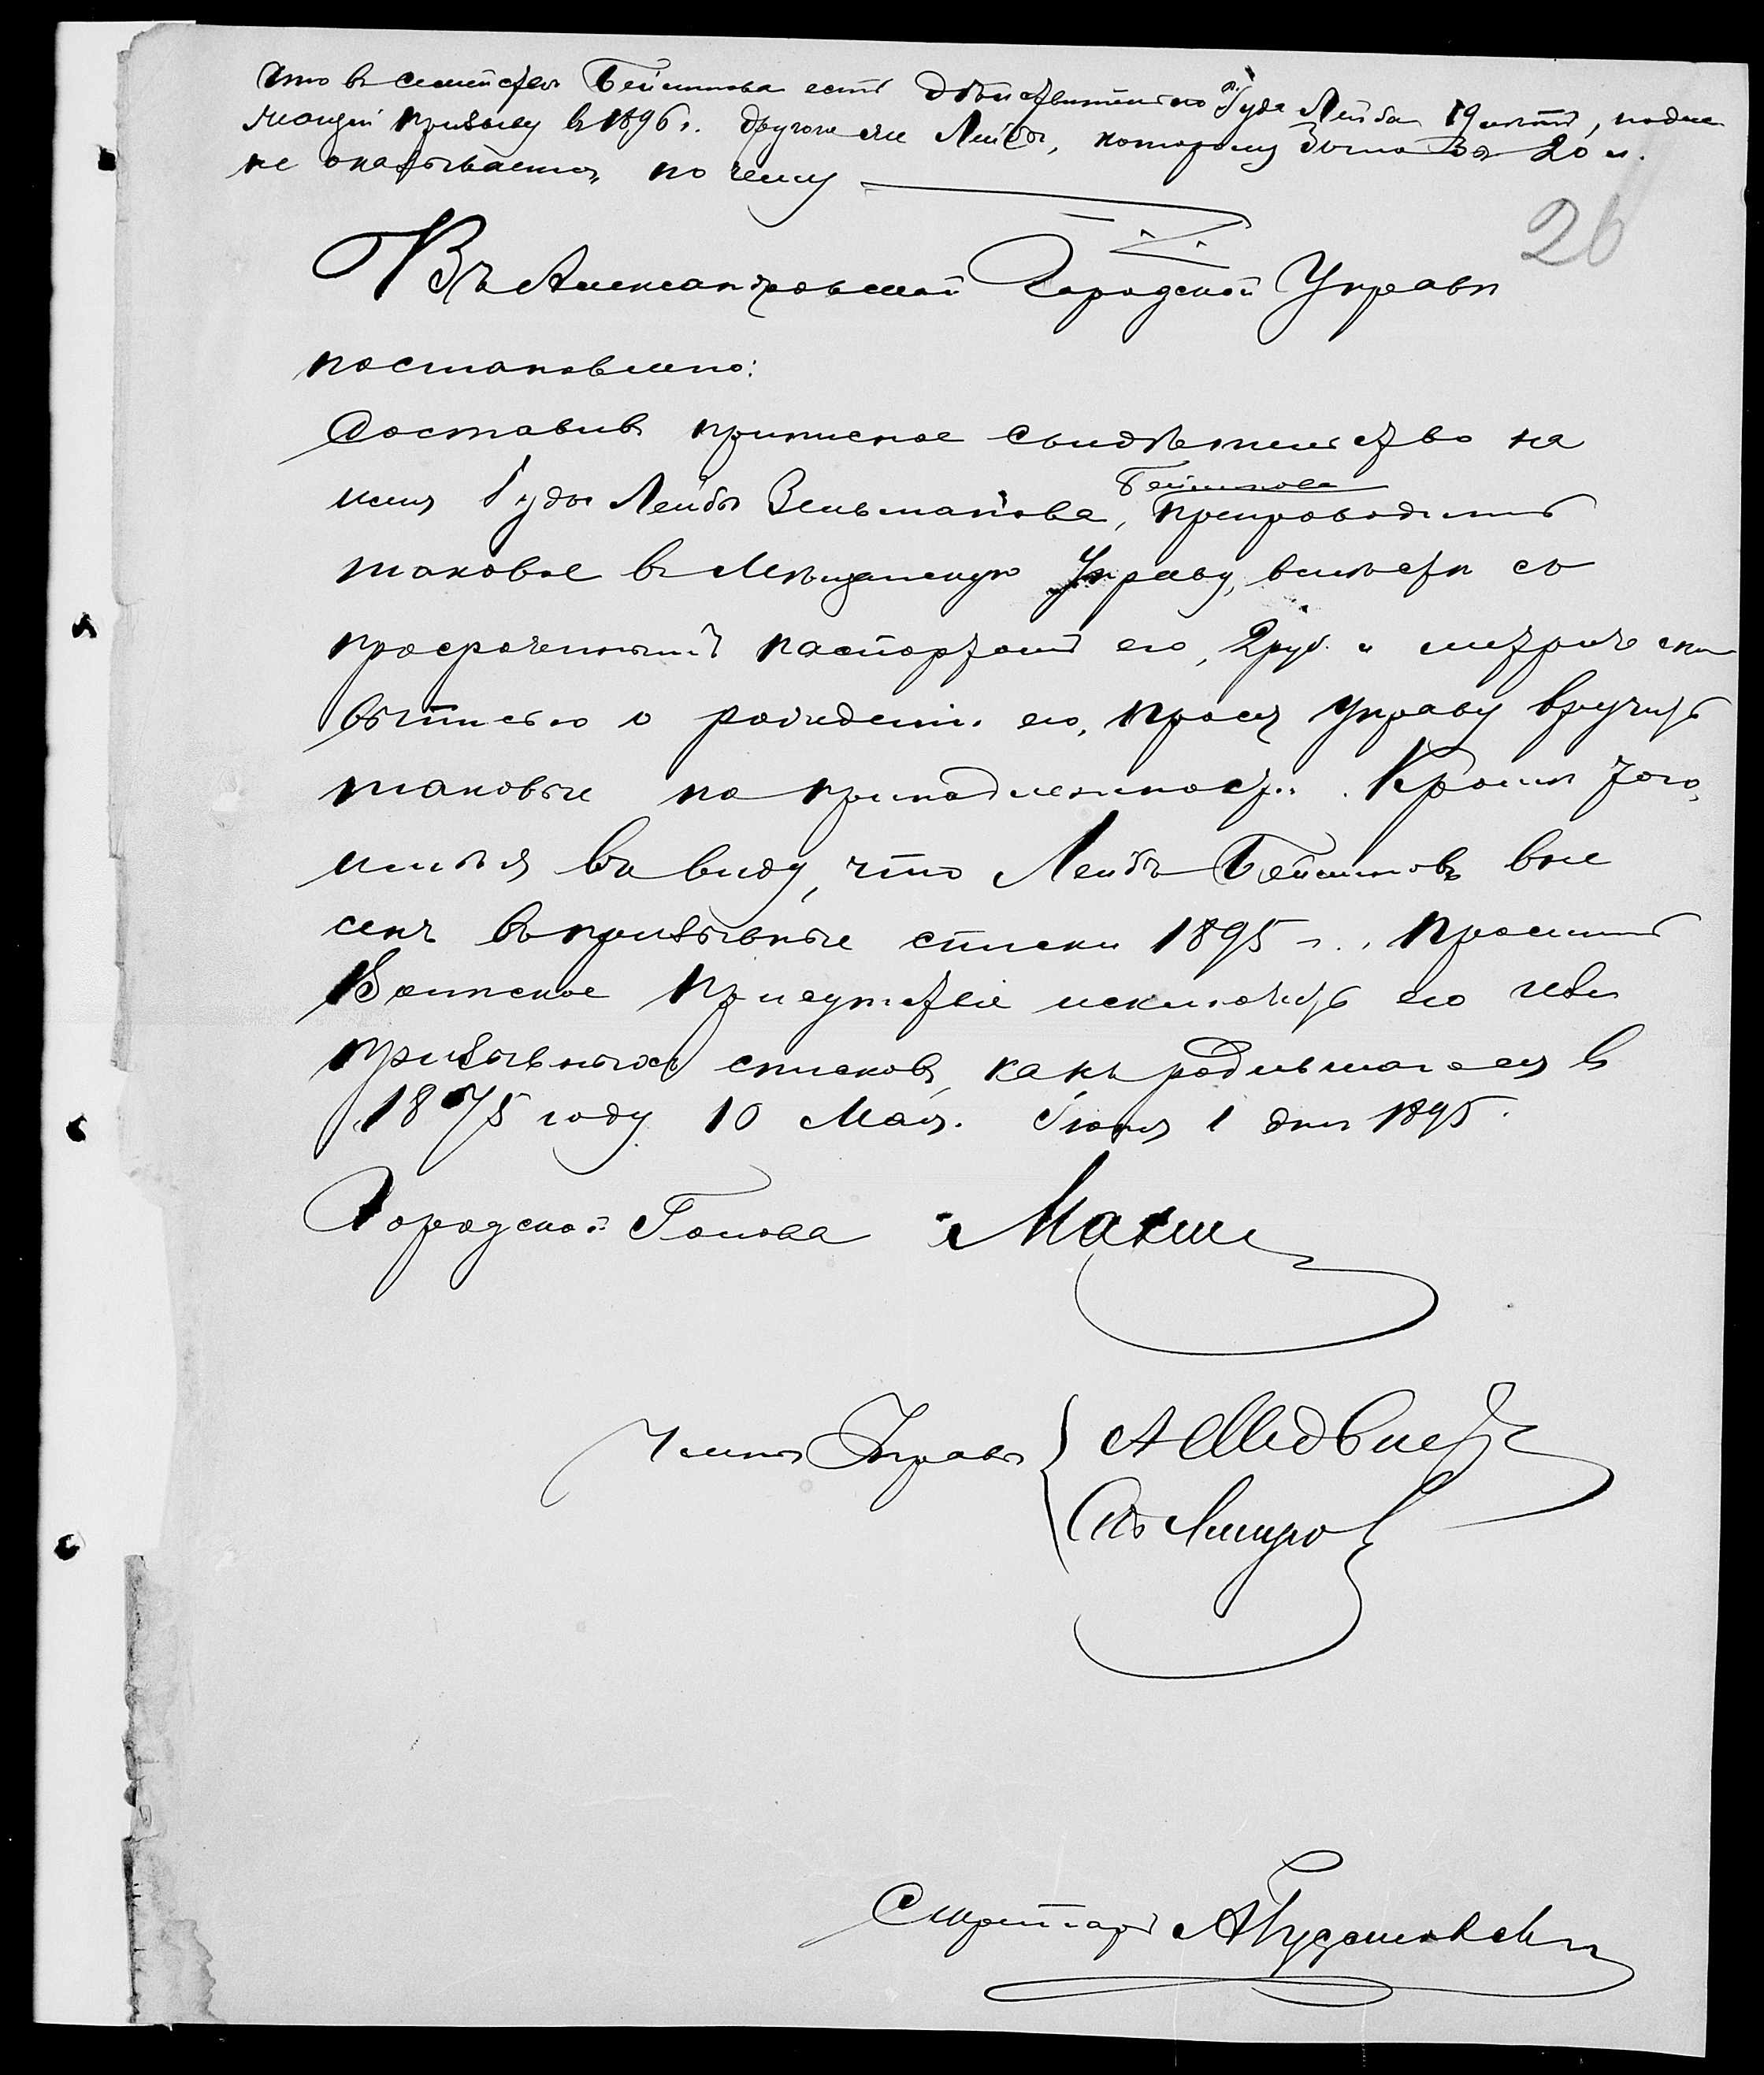 что въ семействѣ Бейлинова есть дѣйствительно Іуда Лейба 19 лѣтъ, подле
жащій призыву въ 1896 г. другого же Лейбы, которому было бы 20 л.
не оказывается, почему
26
Въ Александровской Городской Управѣ
постановлено:
Составивъ приписное свидѣтельство на
имя Іуды Лейбы Зельманова, Бейлинова препроводить
таковое въ Мѣщанскую Управу, вмѣстѣ съ
просроченнымъ паспортомъ его, 2 руб. и метрическою
выписью о рожденіи его, прося Управу вручить
таковые по принадлежности. Кромѣ того,
имѣя въ виду, что Лейба Бейлиновъ вне
сенъ въ призывные списки 1895 г., просить
Воинское Присутствіе исключить его изъ
призывныхъ списковъ, какъ родившагося въ
1875 году 10 Мая. Іюня 1 дня 1895.
Городской Голова
Члены Управы
Секретарь